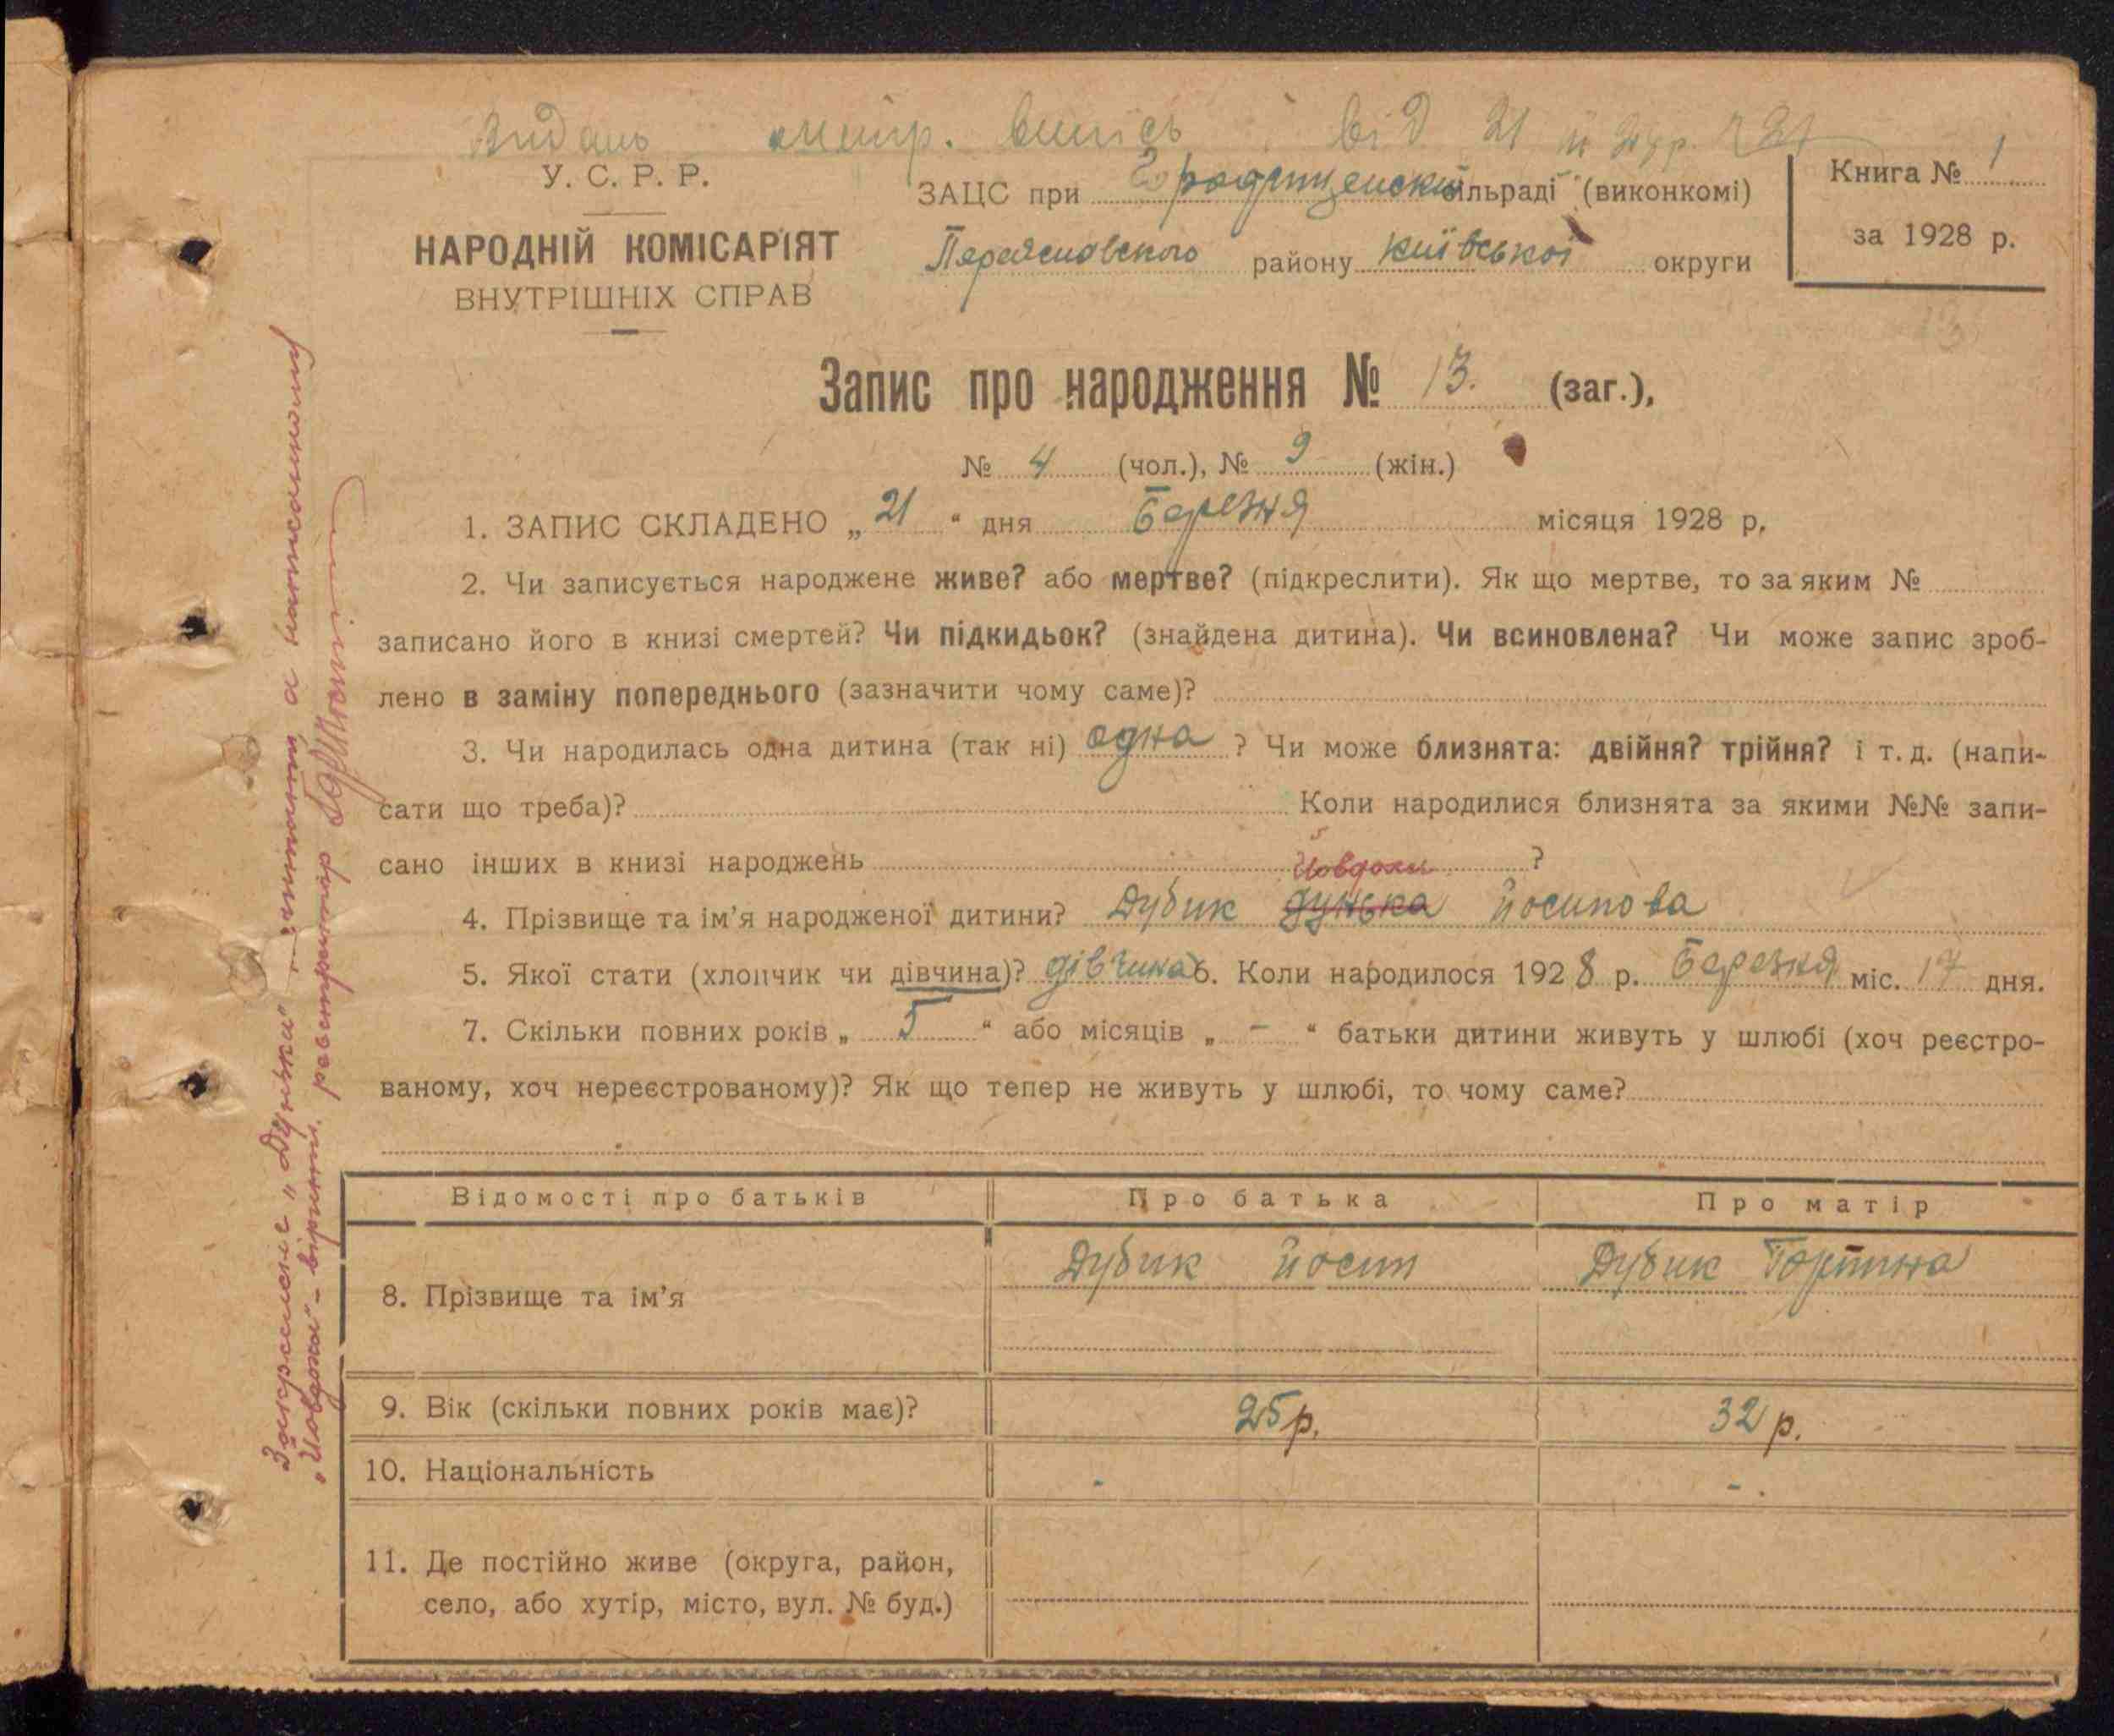 Видань метр. випись від 21
У. С. Р. Р.
НАРОДНІЙ КОМІСАРІЯТ
ВНУТРІШНІХ СПРАВ
ЗАЦС при Городищенский сільраді (виконкомі)
Переяславского району Київської округи
Книга № 1
за 1928 р.
Запис про народження № 13. (заг.),
№ 4 (чол.), № 9 (жін.)
1. ЗАПИС СКЛАДЕНО „ 21 “ дня Березня місяця 1928 р.
2. Чи записується народжене живе? або мертве? (підкреслити). Як що мертве, то за яким №
записано його в книзі смертей? Чи підкидьок? (знайдена дитина). Чи всиновлена? Чи може запис зроб-
лено в заміну попереднього (зазначити чому саме)?
3. Чи народилась одна дитина (так ні) одна ? Чи може близнята: двійня? трійня? і т. д. (напи-
сати що треба)? Коли народилися близнята за якими №№ запи-
сано інших в книзі народжень ?
Йовдоки
4. Прізвище та ім’я народженої дитини? Дубик Дунька Йосипова
5. Якої стати (хлопчик чи дівчина)? дівчина 6. Коли народилося 1928 р. Березня міс. 17 дня.
7. Скільки повних років „ 5 “ або місяців „ - “ батьки дитини живуть у шлюбі (хоч реєстро-
ваному, хоч нереєстрованому)? Як що тепер не живуть у шлюбі, то чому саме?
Відомості про батьків Про батька Про матір
8. Прізвище та ім’я Дубик Йосип Дубик Горпина
9. Вік (скільки повних років має)? 25 р. 32 р.
10. Національність - -
11. Де постійно живе (округа, район,
село, або хутір, місто, вул. № буд.)
Закреслене „Дунька" — читати, а написаному
„Йовдоки" – вірити. реєстратор